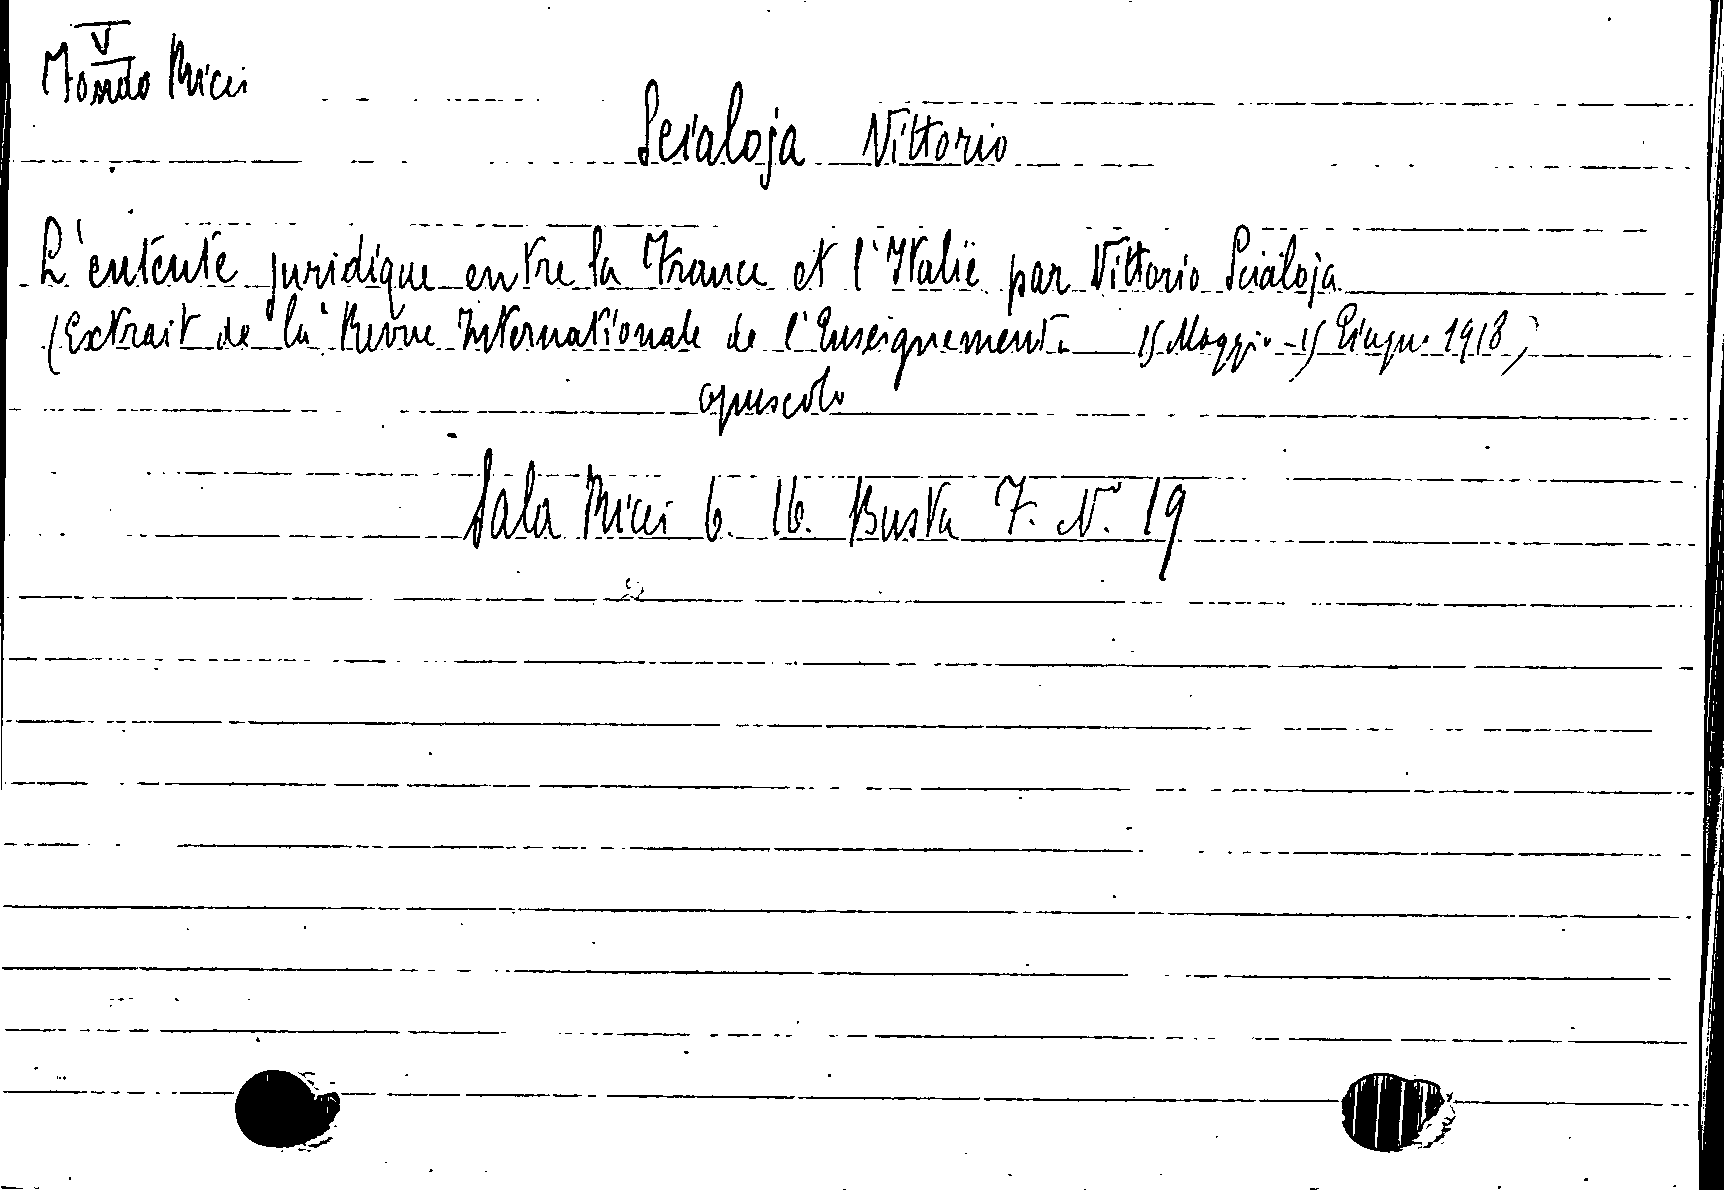 V
Fondo Ricci
Scialoja Vittorio
L'entente juridique entre la France et l'Italie par Vittorio Scialoja
(Extrait de la Revue Internationale de l'Enseignement. 15 Maggio - 15 Giugno 1918)
opuscolo
Sala Ricci 6. 16. Busta 7. N. 19